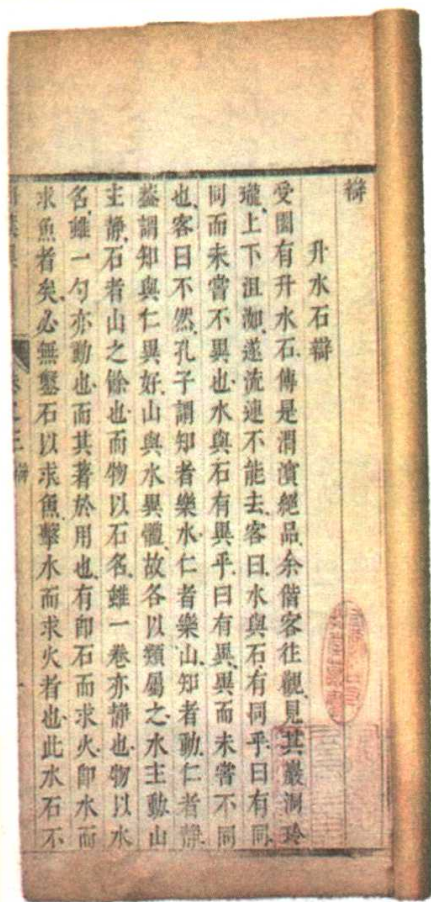 辯
升水石辯
受圃有升水石傳是渭濱絕品余偕客往觀見其巖洞玲
瓏上下沮洳遂流連不能去客曰水與石有同乎曰有同
同而未嘗不異也水與石有異乎曰有異異而未嘗不同
也客曰不然孔子謂知者樂水仁者樂山知者動仁者靜
蓋謂知與仁異好山與水異體故各以類屬之水主動山
主靜石者山之餘也而物以石名雖一卷亦靜也物以水
名雖一勺亦動也而其著於用也有即石而求火即水而
求魚者矣必無鑿石以求魚擊水而求火者也此水石不
卷之三 辯